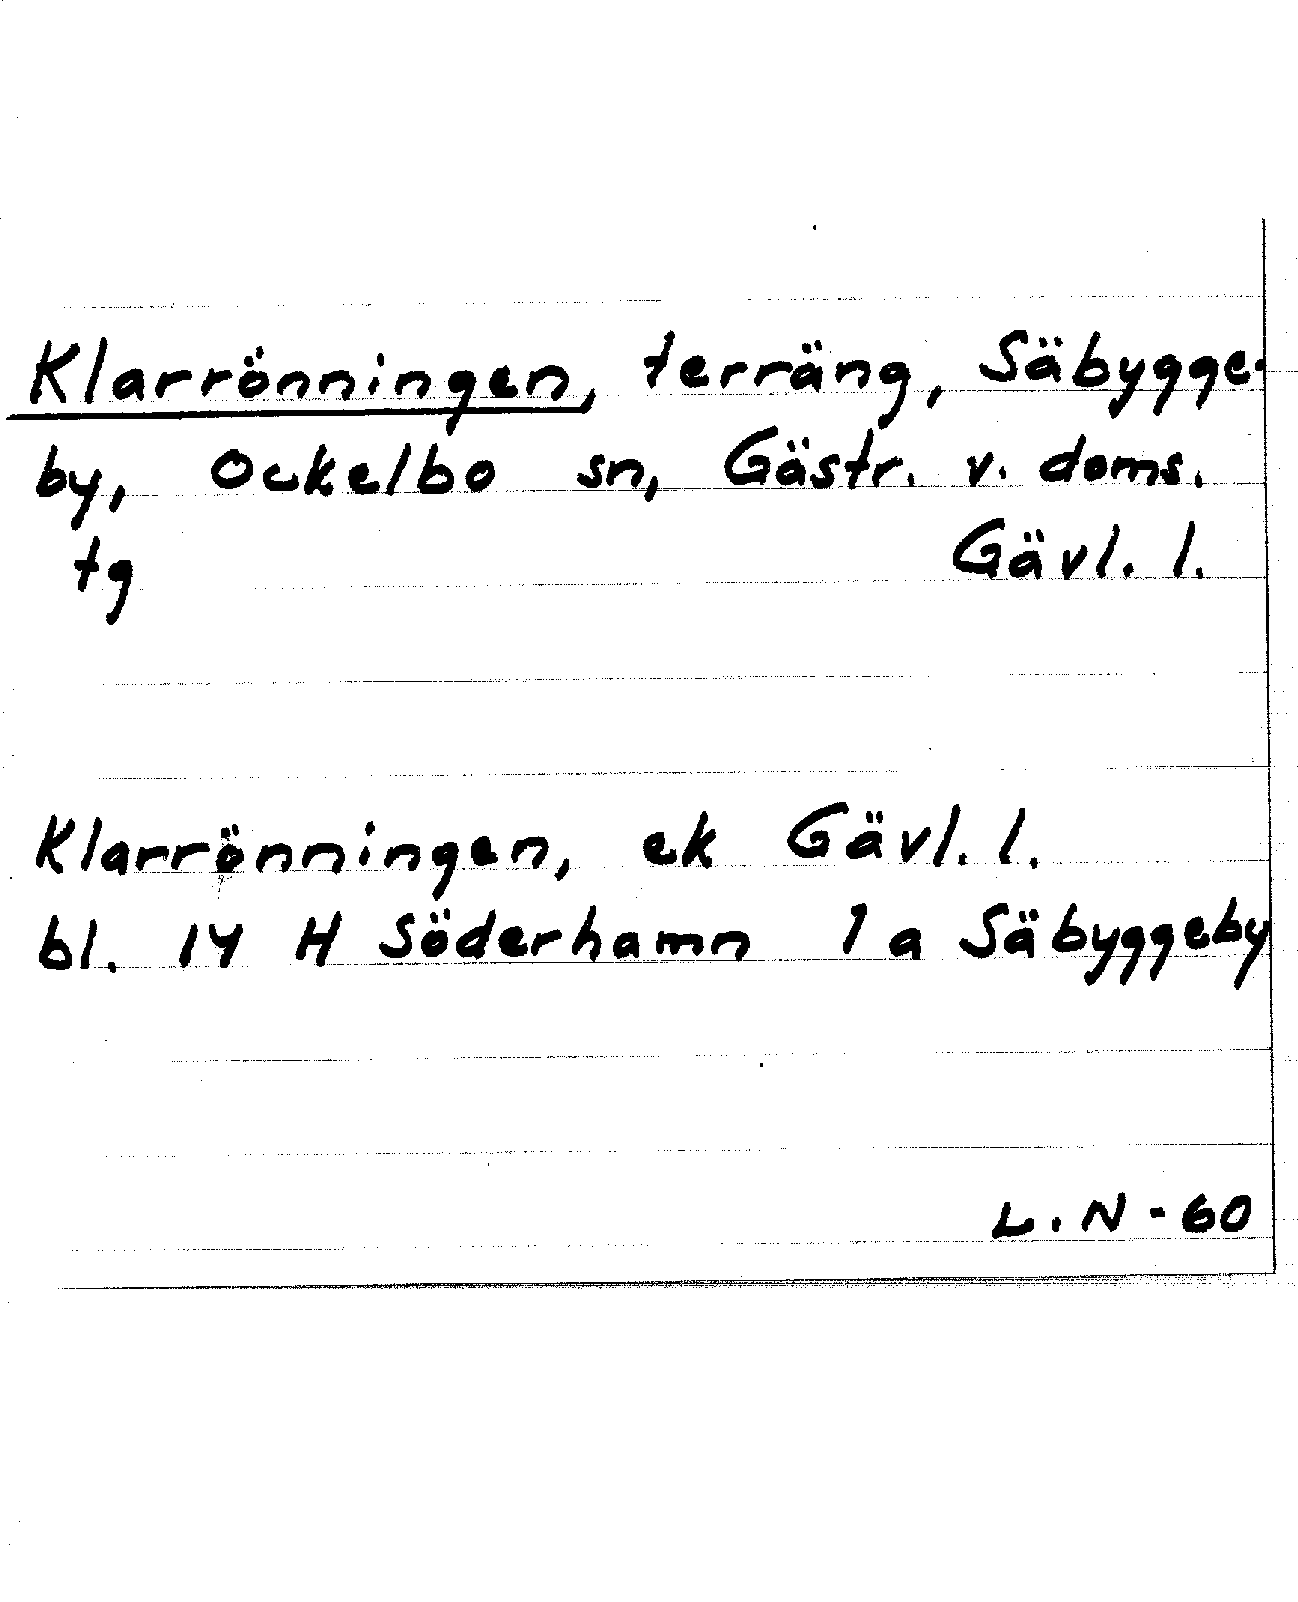 Klarrönningen, terräng, Säbygge-
by, Ockelbo sn, Gästr. v. doms.
tg Gävl. l.
Klarrönningen, ek Gävl. l.
bl. 14 H Söderhamn 1 a Säbyggeby
L. N - 60